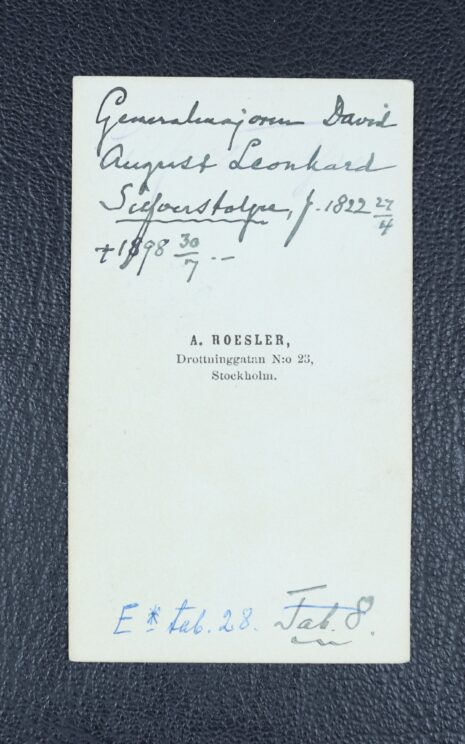 Generalmajoren David
August Leonhard
Silfverstolpe, f. 1822 27/4
+ 1898 30/7 --
A. ROESLER,
Drottninggatan N:o 23,
Stockholm.
E* tab. 28. Tab. 8.